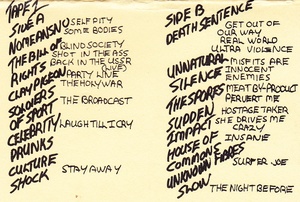 TAPE 1
SIDE A
NOMEANSNO SELF PITY
SOME BODIES
THE BILL OF RIGHTS BLIND SOCIETY
SHOT IN THE ASS
BACK IN THE USSR
(LIVE)
CLAY PIGEON PARTY LINE
THE HOLY WAR
SOLDIERS OF SPORT THE BROADCAST
CELEBRITY DRUNKS LAUGH TILL I CRY
CULTURE SHOCK STAY AWAY
SIDE B
DEATH SENTENCE GET OUT OF
OUR WAY
REAL WORLD
ULTRA VIOLENCE
UNNATURAL SILENCE MISFITS ARE
INNOCENT
ENEMIES
THE SPORES MEAT BY-PRODUCT
PERVERT ME
SUDDEN IMPACT HOSTAGE TAKER
SHE DRIVES ME
CRAZY
HOUSE OF COMMONS INSANE
UNKNOWN FABLES SURFER JOE
SLOW THE NIGHT BEFORE